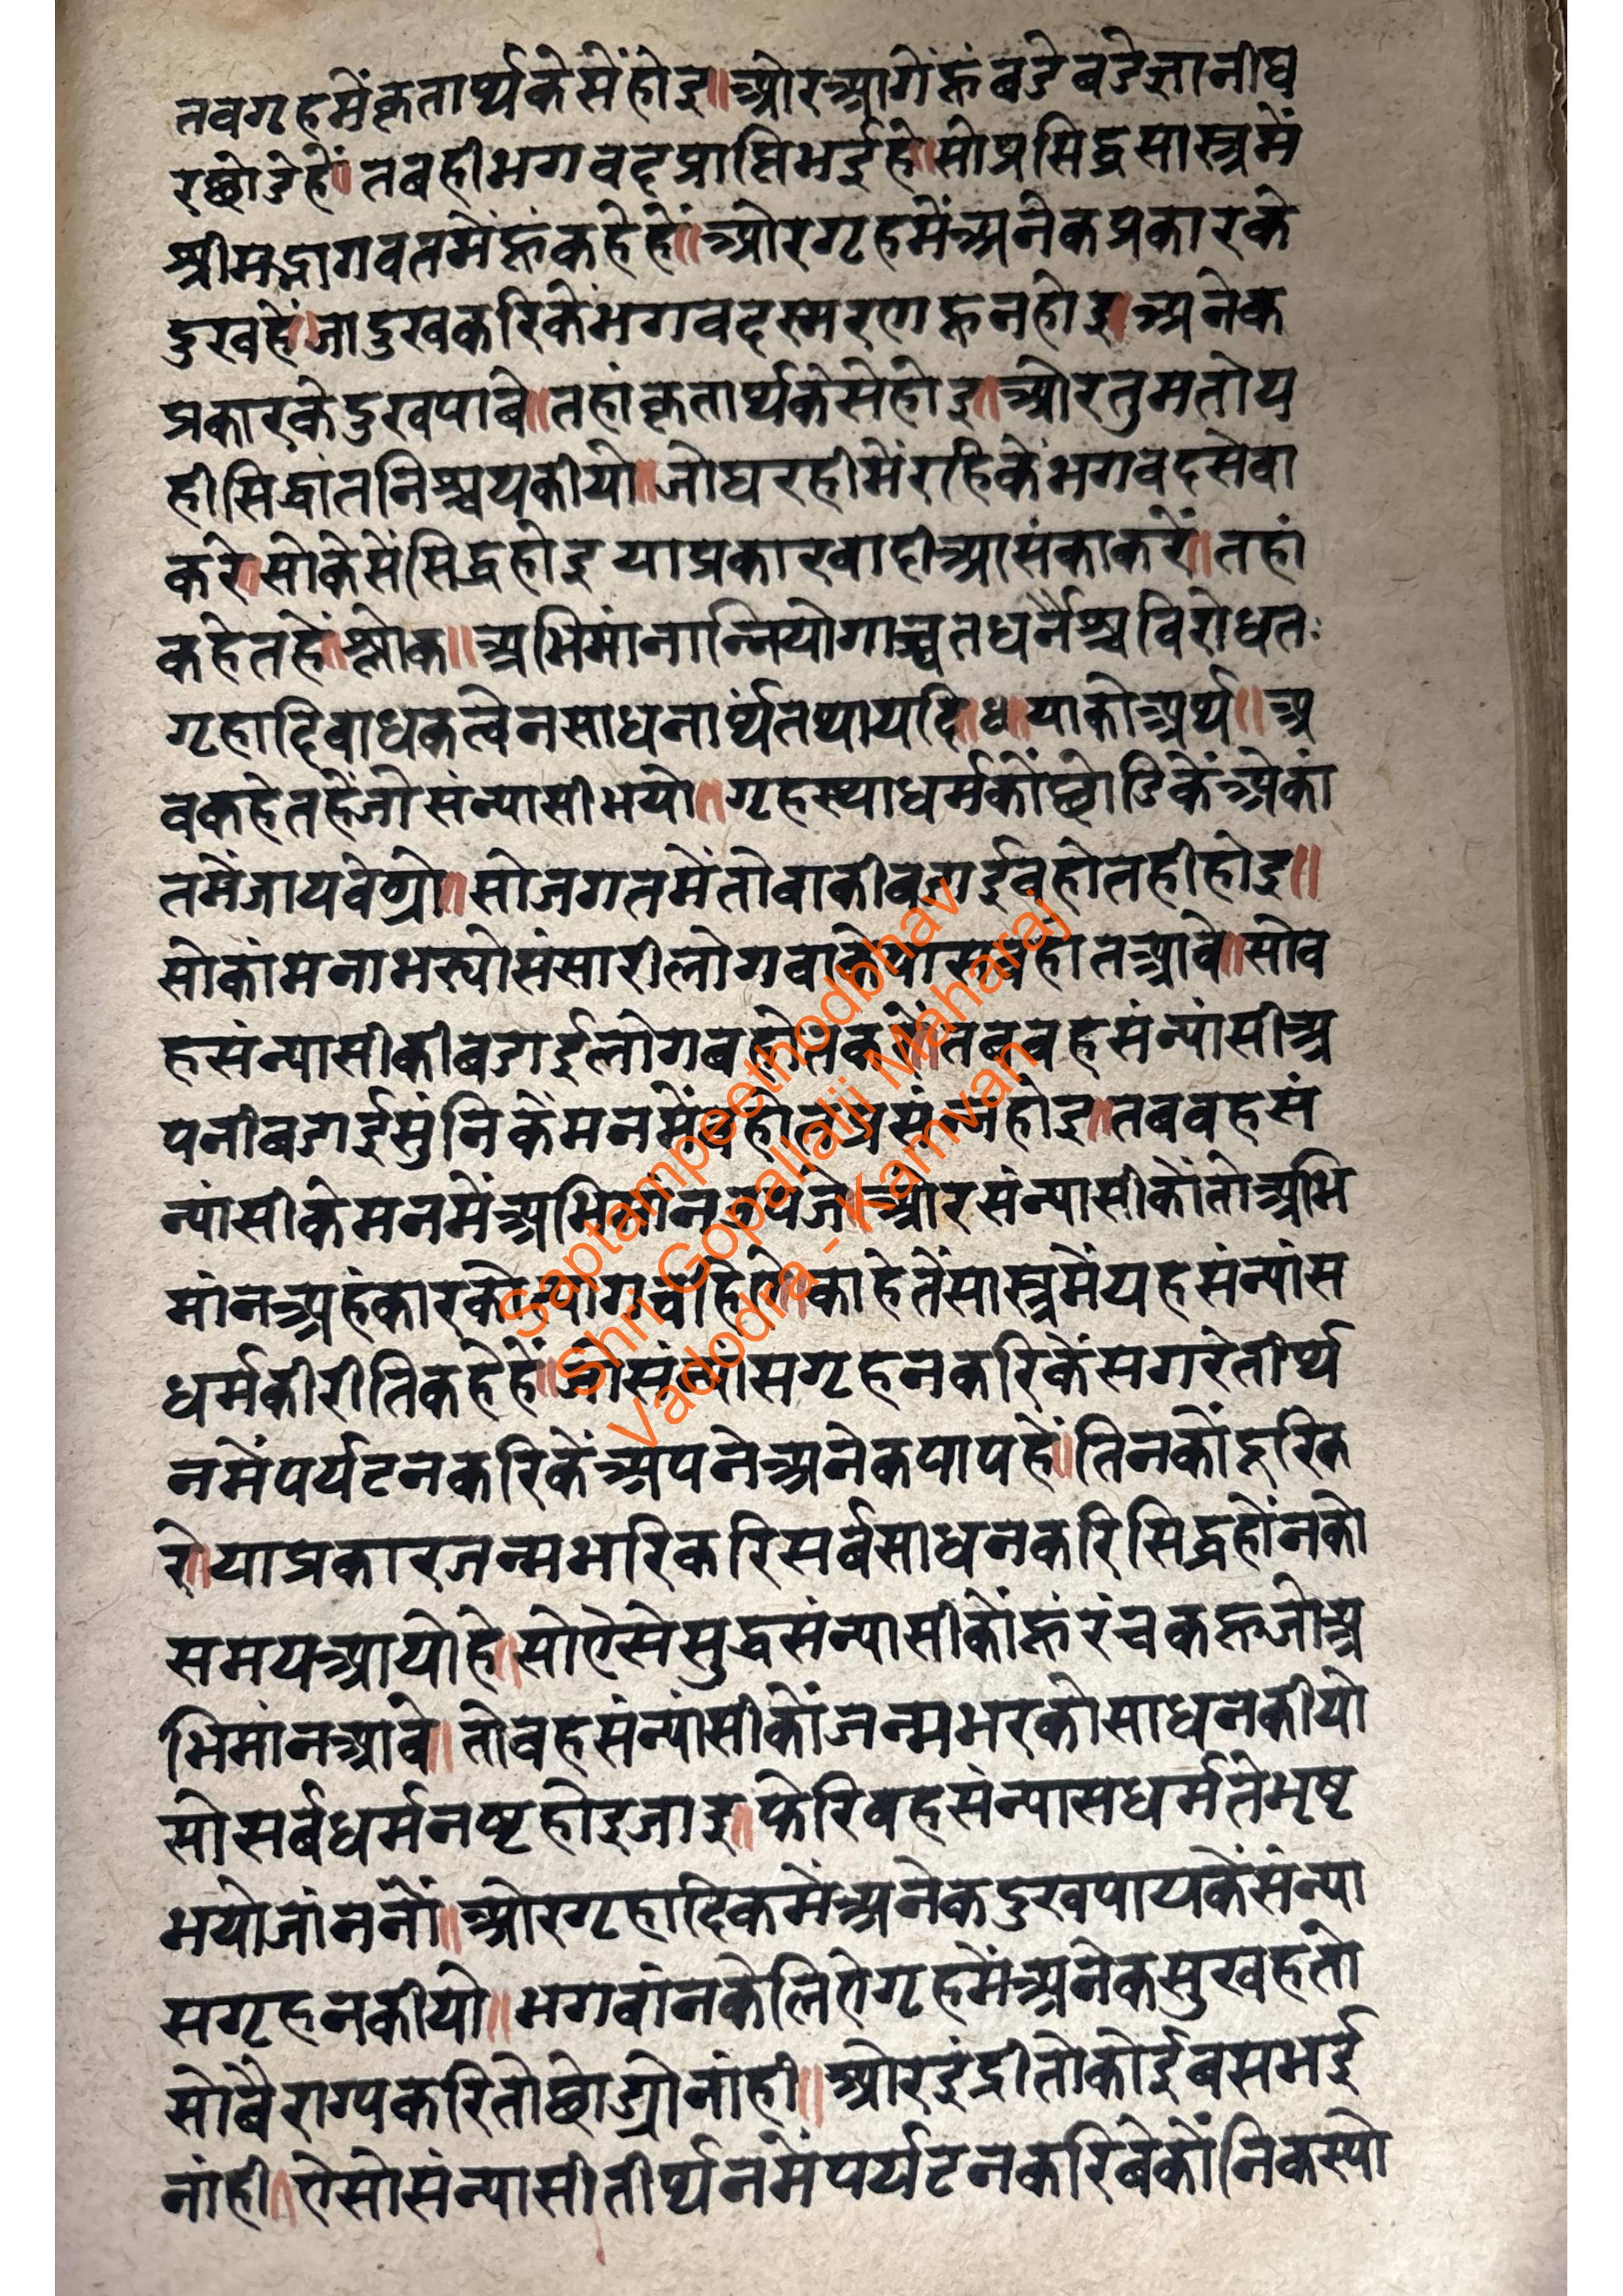 तवगृहमेंकृतार्थकेसेंहोइ॥ओरआगेंहूंबडेबडेज्ञानीघ
रछोडेहें॥तबहीभगवदप्राप्तिभईहे॥सोप्रसिद्धसास्त्रमें
श्रीमद्भागवतमेंहूंकहेहें॥ओरगृहमेंअनेकप्रकारके
दुखहें॥जादुखकरिकेंभगवदस्मरणहूनहोइ॥अनेक
प्रकारकेदुखपाबे॥तहांकृतार्थकेसेहोइ॥ओरतुमतोय
हीसिद्धांतनिश्चयकीयो॥जोघरहीमेंरहिकेंभगवदसेवा
करे॥सोकेसेंसिद्धहोइयाप्रकारवादीआसंकाकरें॥तहां
कहेतहें॥श्लोक॥अभिमांनान्नियोगाच्चतधर्नैश्चविरोधतः
गृहादिबाधकत्वेनसाधनार्थंतथायदि॥४॥याकोअर्थ॥अ
वकहेतहेंजोसंन्यासीभयो॥गृहस्थाधर्मकोंछोडिकेंअेकां
तमेंजायवेग्रो॥सोजगतमेंतोवाकीबडाईबहोतहीहोइ॥
सोकांमनाभस्योसंसारीलोगवाकेपासबहोतआवे॥सोव
हसंन्यासीकीबडाईलोगबहोतकरें॥तबवहसंन्यांसीअ
पनीबडाईसुंनिकेंमनसेंबहोतप्रसंन्नहोइ॥तबवहसं
न्यांसीकेमनमेंअभिमांनउपजे॥ओरसंन्यासीकोंतोअभि
मांनअहंकारकोत्यागचहिये॥काहेतेंसास्त्रमेंयहसंन्यांस
धर्मकीरीतिकहेहें॥जोसंन्यांसगृहनकरिकेंसगरेतीर्थ
नमेंपर्यटनकरिकेंअपनेअनेकपापहें॥तिनकोंदूरिक
रे॥याप्रकारजन्मभरिकरिसर्बसाधनकरिसिद्धहोंनको
समयआयोहे॥सोऐसेसुद्धसंन्यासीकोंहूंरंचकहूजोअ
भिमांनआवे॥तोवहसंन्यांसीकोंजन्मभरकोसाधनकीयो
सोसर्बधर्मनष्टहोइजाइ॥फेरिवहसंन्यासधर्मतेभृष्ट
भयोजांननों॥ओरगृहादिकमेंअनेकदुखपायकेंसंन्या
सगृहनकीयो॥भगवांनकेलिऐगृहमेंअनेकसुखहतो
सोबैराग्यकरितोछोड्योनांही॥ओरइंद्रीतोकोईबसभई
नांही॥ऐसोसंन्यासीतीर्थनमेंपर्यटनकरिबेकोंनिकस्यो
Saptampeethodbhav
Shri Gopallalji Maharaj
Vadodra - Kamvan